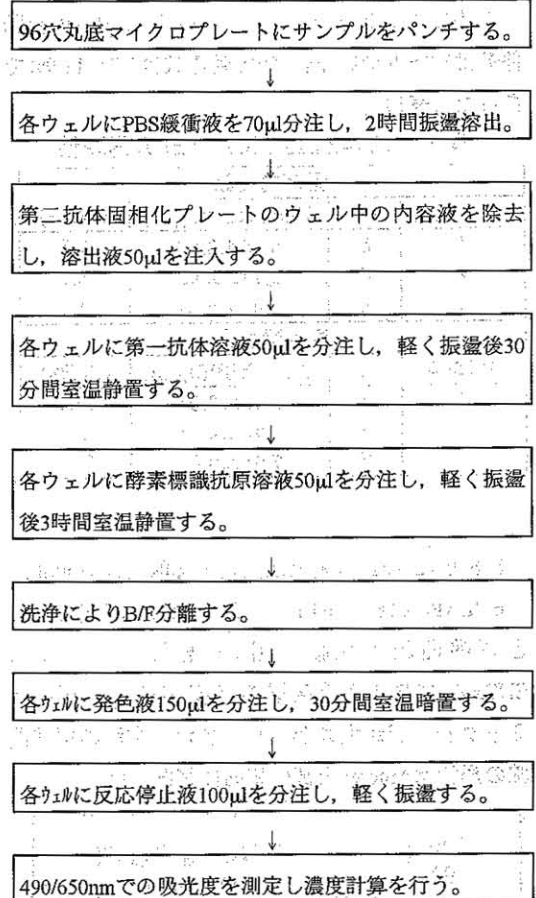 96穴丸底マイクロプレートにサンプルをパンチする。
↓
各ウェルにPBS緩衝液を70μl分注し，2時間振盪溶出。
↓
第二抗体固相化プレートのウェル中の内容液を除去
し，溶出液50μlを注入する。
↓
各ウェルに第一抗体溶液50μlを分注し，軽く振盪後30
分間室温静置する。
↓
各ウェルに酵素標識抗原溶液50μlを分注し，軽く振盪
後3時間室温静置する。
↓
洗浄によりB/F分離する。
↓
各ｳｪﾙに発色液150μlを分注し，30分間室温暗置する。
↓
各ｳｪﾙに反応停止液100μlを分注し，軽く振盪する。
↓
490/650nmでの吸光度を測定し濃度計算を行う。